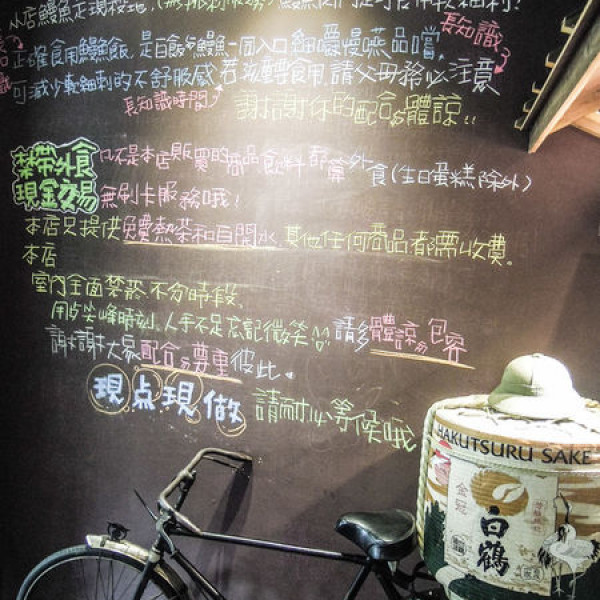 小店鰻魚走現殺地.(無排刺服務)
長知識
正確食用鰻魚飯,是白飯與鰻魚一同入口細嚼慢嚥品嚐,
可減少軟細刺的不舒服感 若孩童食用,請父母務必注意
長知識時間 謝謝你的配合&體諒!!
禁帶外食 只不是本店販買的商品飲料都算外食(生日蛋糕除外)
現金交易 無刷卡服務哦!
本店只提供免費熱茶和白開水,其他任何商品都需收費。
本店
室內全面禁菸,不分時段,
用歺尖峰時刻,人手不足忘記微笑 請多體諒与包容
謝謝大家配合与尊重彼此。
現点現做 請耐心等候哦
HAKUTSURU SAKE
金冠
白鶴